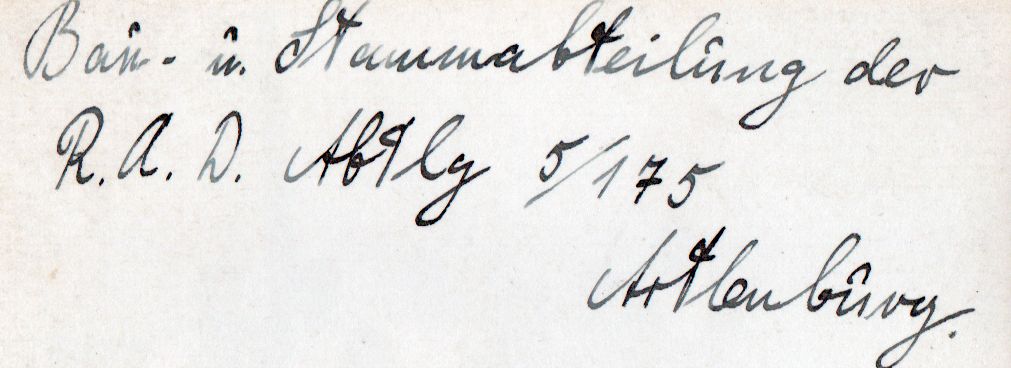 Bau- u. Stammabteilung der
R. A. D. Abtlg 5/175
Artlenburg.